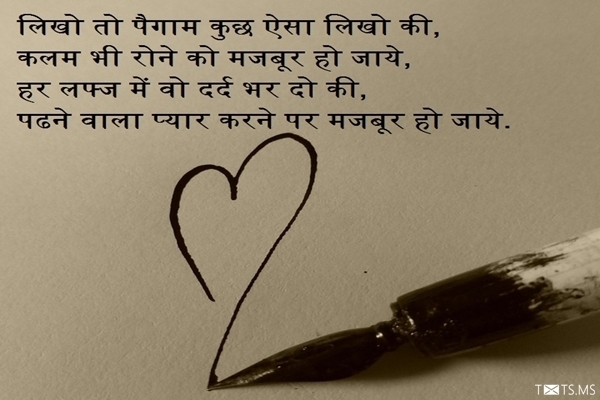 लिखो तो पैगाम कुछ ऐसा लिखो की,
कलम भी रोने को मजबूर हो जाये,
हर लफ्ज में वो दर्द भर दो की,
पढने वाला प्यार करने पर मजबूर हो जाये.
TXTS.MS